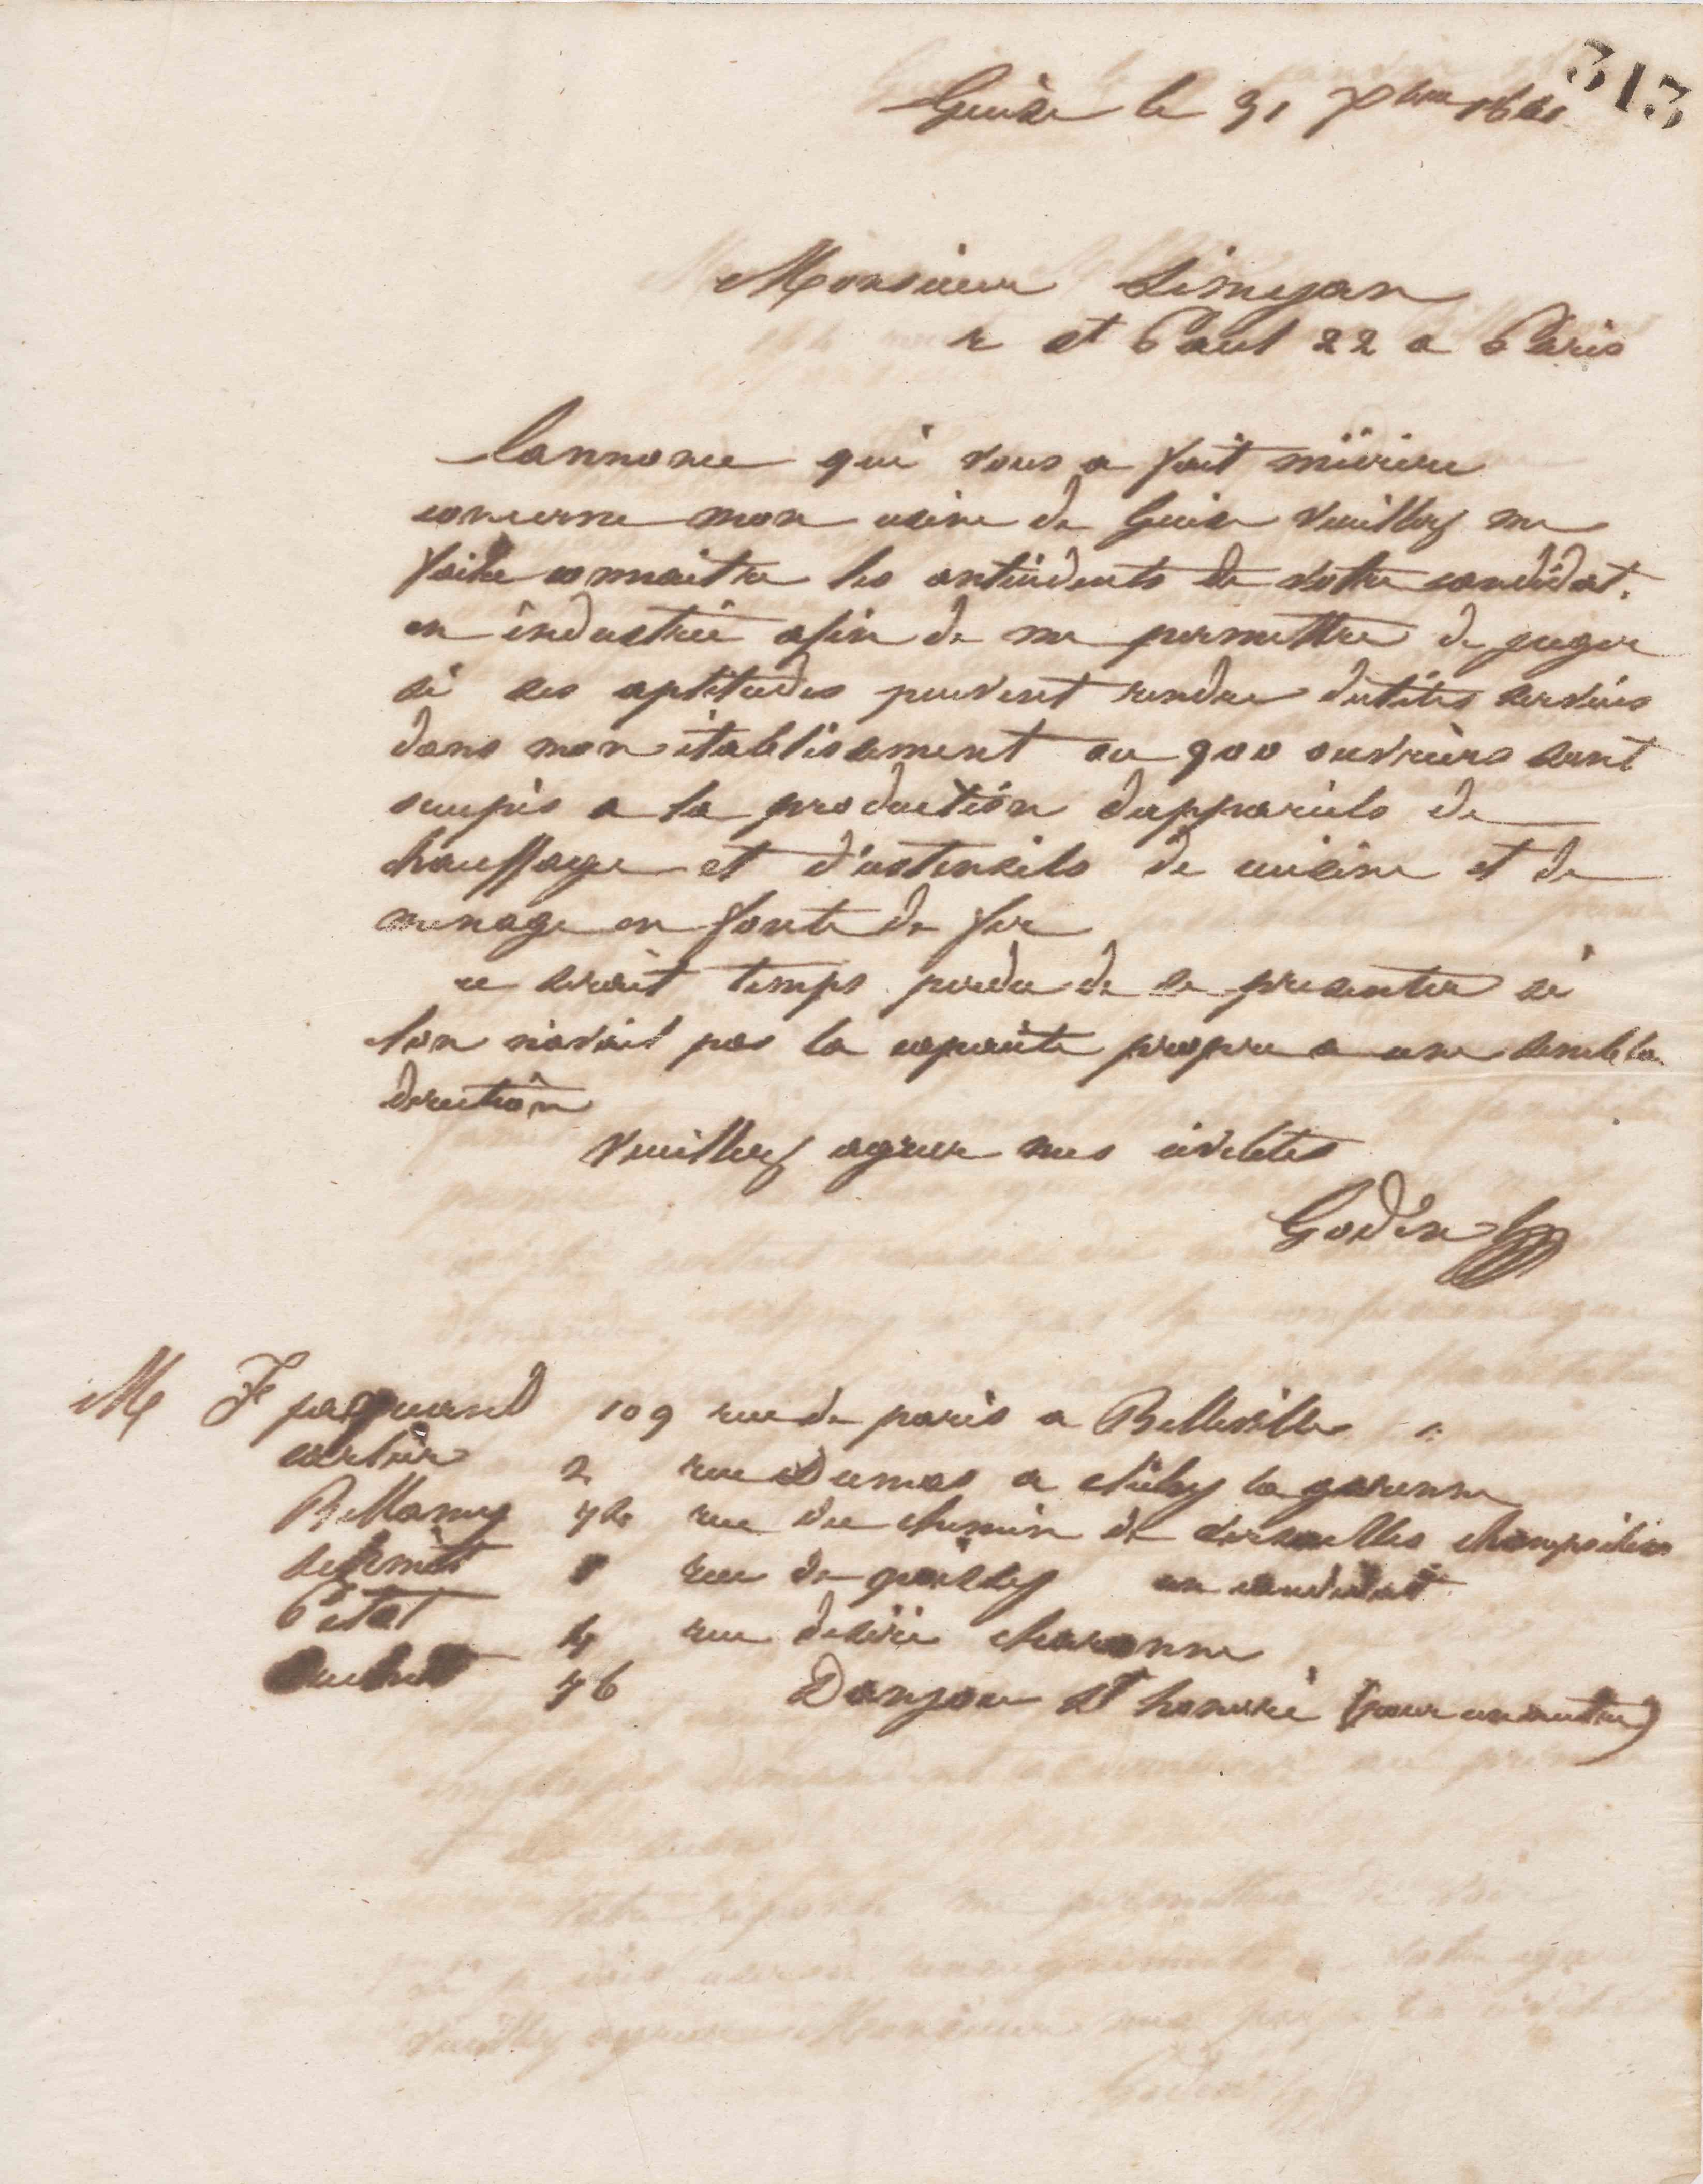 313
Guise le 31 Xbre 1861
Monsieur Limejan
r St Paul 22 a Paris
lannonce qui vous a fait m'écrire
concerne mon usine de Guise veuillez me
faire connaitre les antécédents de votre candidat
en industrie afin de me permettre de juger
si ses aptitudes peuvent rendre dutiles services
dans mon établissement ou 900 ouvriers sont
occupés a la production dappareils de
chauffage et d'ustensils de cuisine et de
menage en fonte de fer
ce serait temps perdu de se presenter si
lon n'avait pas la capacité propre a une sembla
direction
veuillez agreer mes civilités
Godin
M Je paquand 109 rue de paris a Belleville
cartier 2 rue Dumas a clichy la garenne
Bellamy 76 rue du chemin de versailles champs élisés
8 rue de un candidat
Petot 4 rue desiré charonne
76 Danjou St honoré (pour un autre)